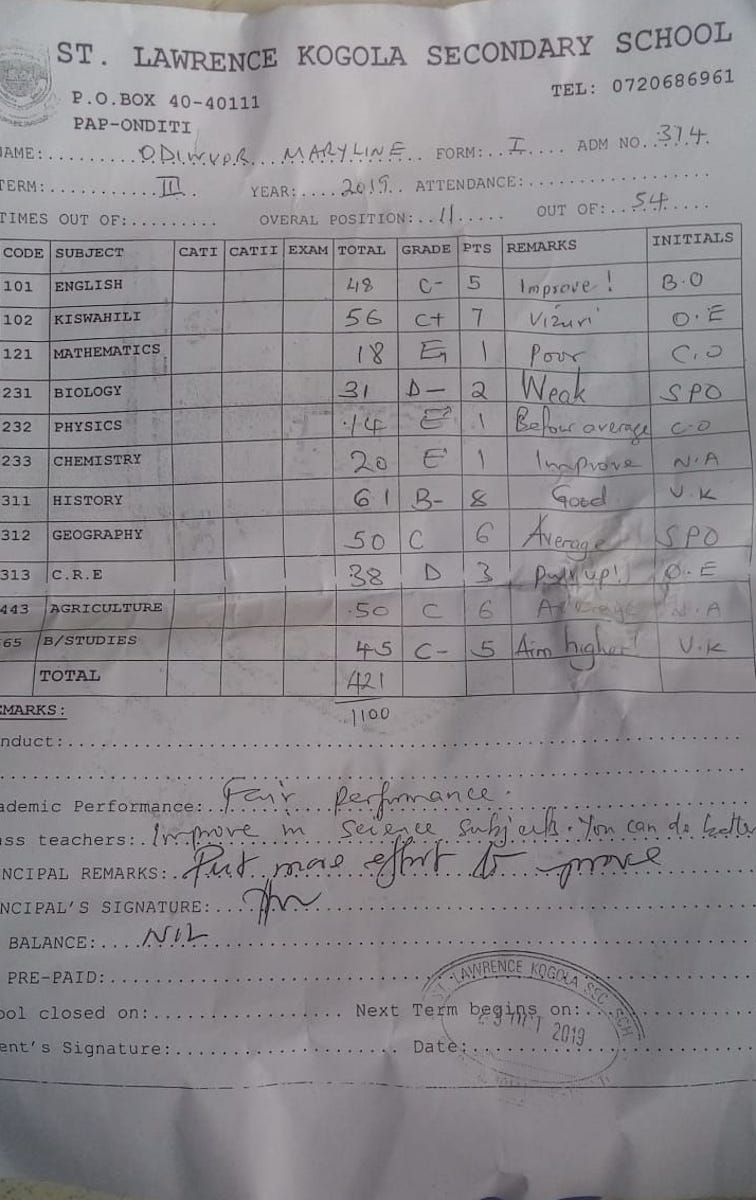 ST. LAWRENCE KOGOLA SECONDARY SCHOOL
P.O.BOX 40-40111 TEL: 0720686961
PAP-ONDITI
AME:......... MARYLINE FORM:..I.... ADM NO..374.
TERM:...........III.......... YEAR:....2019.. ATTENDANCE:..................
TIMES OUT OF:......... OVERAL POSITION:..11..... OUT OF:..54....
CODE SUBJECT CATI CATII EXAM TOTAL GRADE PTS REMARKS INITIALS
101 ENGLISH 48 C- 5 Improve! B.O
102 KISWAHILI 56 C+ 7 Vizuri O.E
121 MATHEMATICS 18 E 1 Poor C.O
231 BIOLOGY 31 D- 2 Weak SPO
232 PHYSICS 14 E 1 Below average C.O
233 CHEMISTRY 20 E 1 Improve N.A
311 HISTORY 61 B- 8 Good V.K
312 GEOGRAPHY 50 C 6 Average SPO
313 C.R.E 38 D 3 Pull up! O.E
443 AGRICULTURE 50 C 6 Average N.A
65 B/STUDIES 45 C- 5 Aim higher! V.K
TOTAL 421
1100
EMARKS:
nduct:
ademic Performance: Fair performance.
ass teachers: Improve in science subjects. You can do better
NCIPAL REMARKS: Put more effort to
NCIPAL'S SIGNATURE:
BALANCE: NIL
PRE-PAID:
ool closed on: Next Term begins on:
ent's Signature: Date:
ST. LAWRENCE KOGOLA SEC. SCH
2019